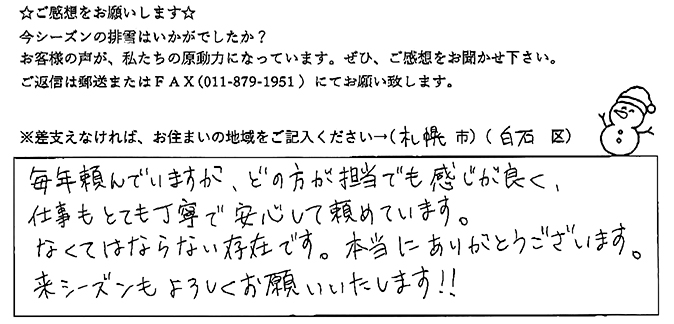 ☆ご感想をお願いします☆
今シーズンの排雪はいかがでしたか？
お客様の声が、私たちの原動力になっています。ぜひ、ご感想をお聞かせ下さい。
ご返信は郵送またはＦＡＸ(011-879-1951）にてお願い致します。
※差支えなければ、お住まいの地域をご記入ください→(札幌 市)(白石 区)
毎年頼んでいますが、どの方が担当でも感じが良く、
仕事もとても丁寧で安心して頼めています。
なくてはならない存在です。本当にありがとうございます。
来シーズンもよろしくお願いいたします!!